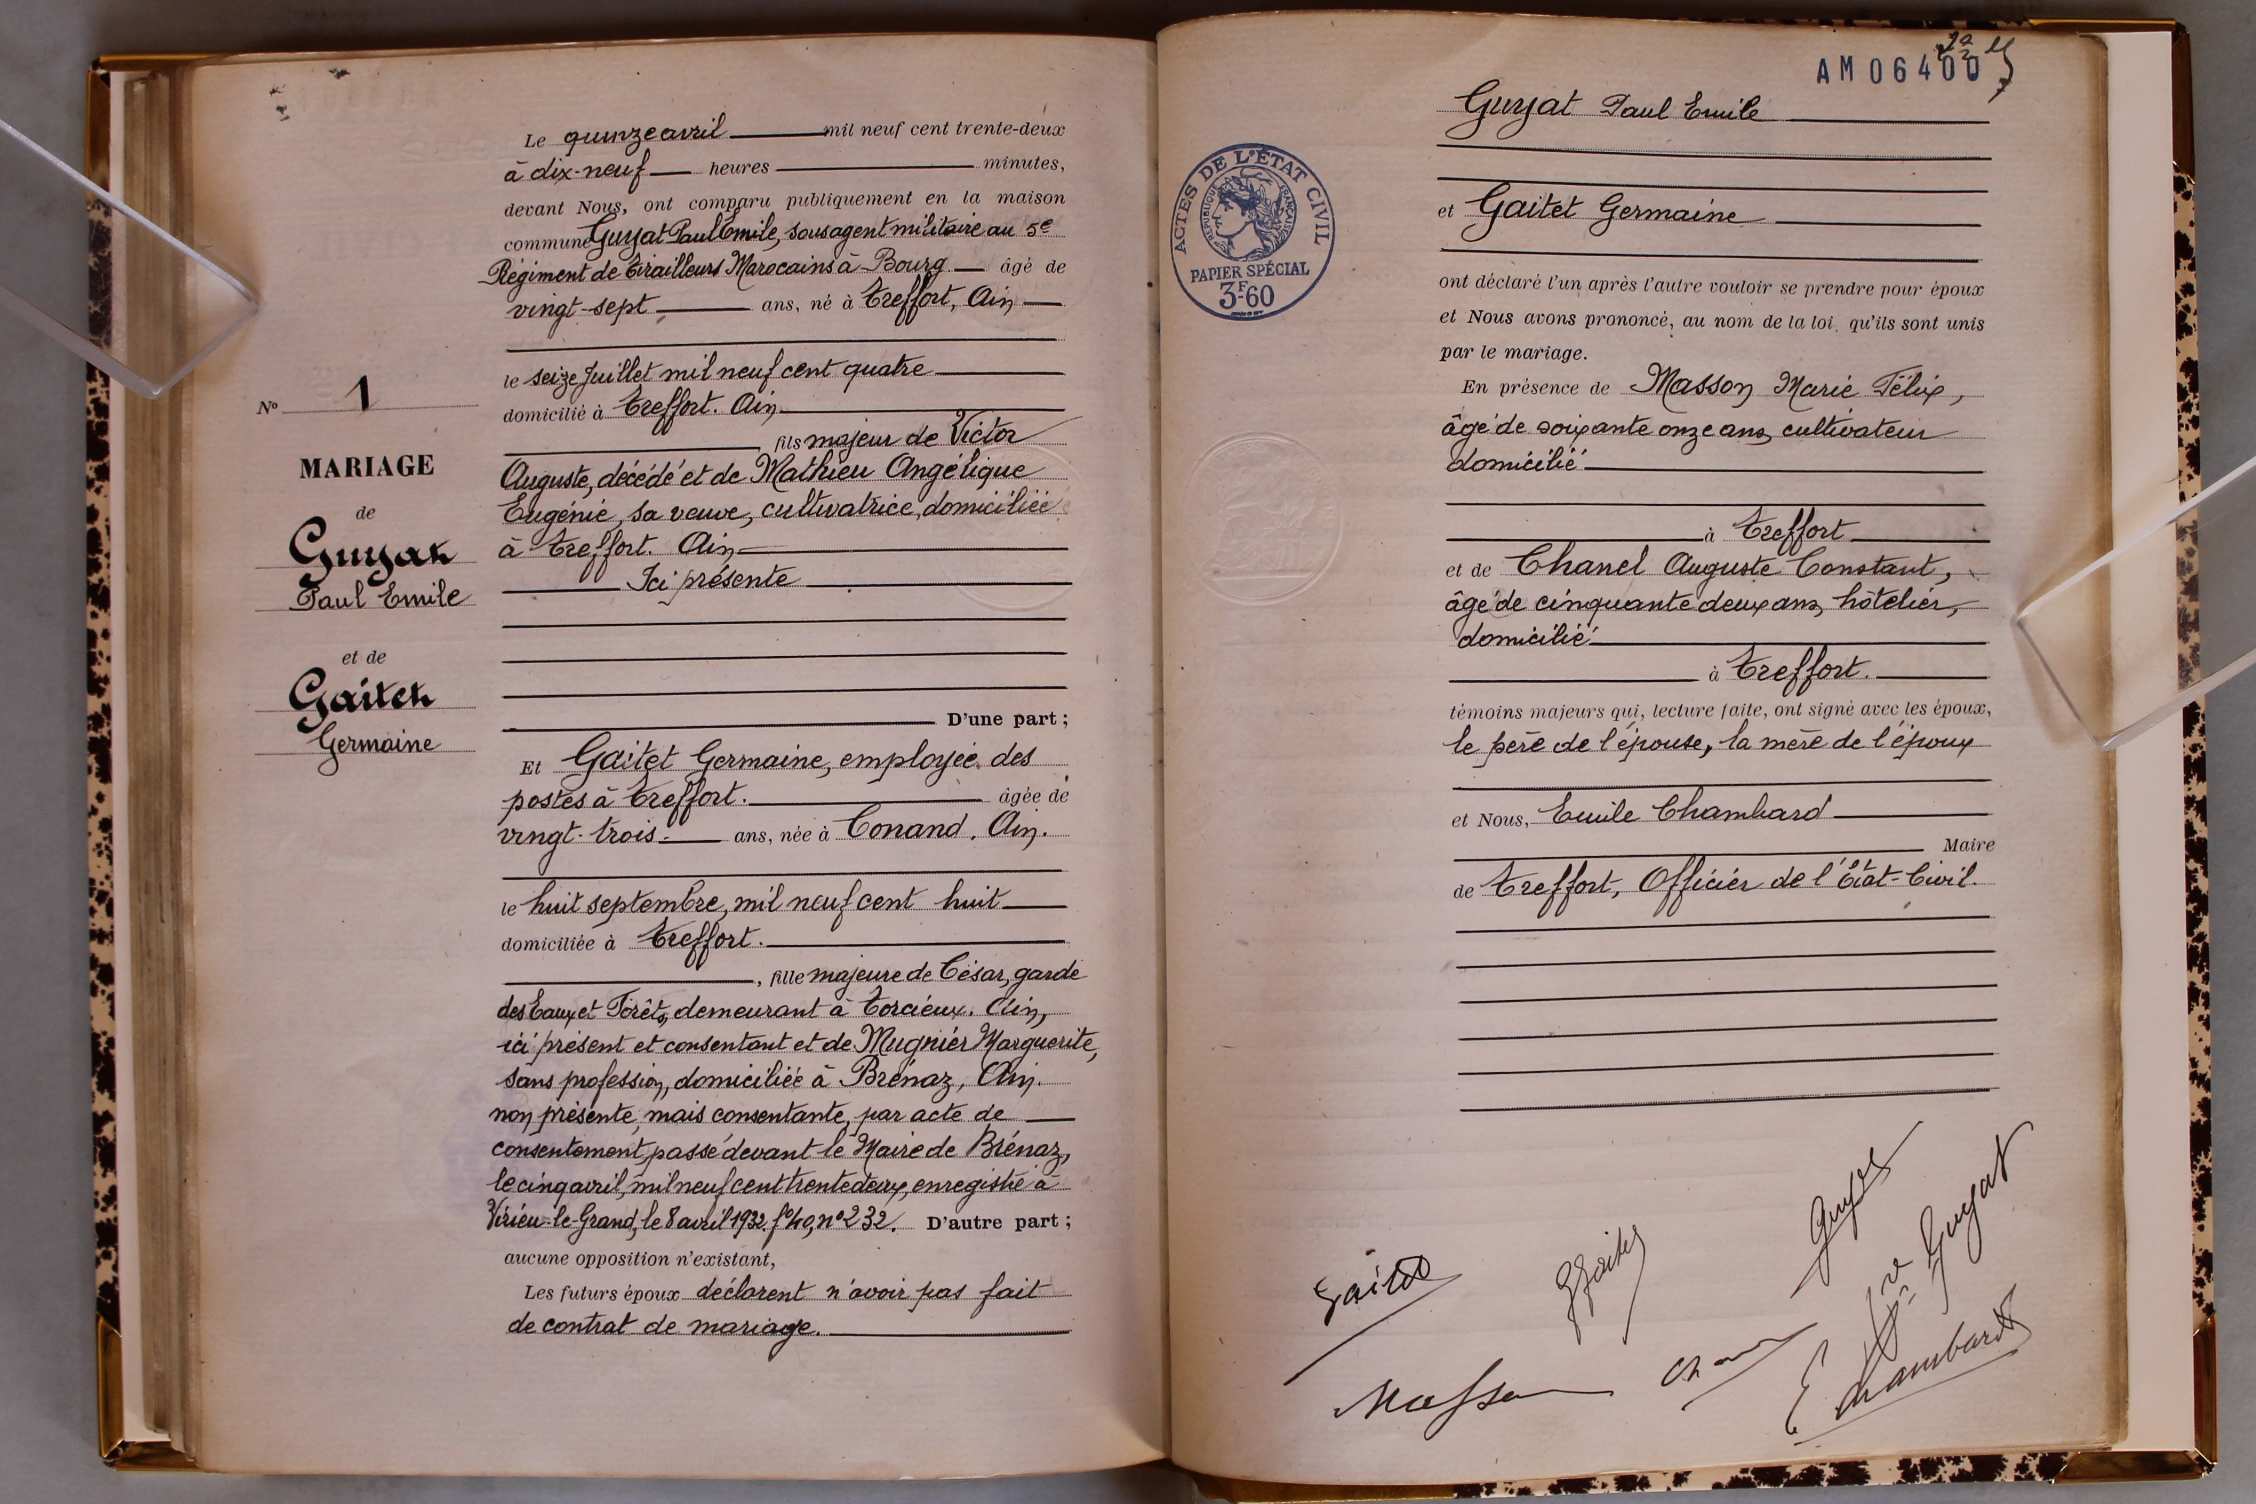 Le quinze avril mil neuf cent trente-deux
à dix-neuf heures minutes,
devant Nous, ont comparu publiquement en la maison
commune Guyat Paul Emile, sous agent militaire au 5e
Régiment de Tirailleurs Marocains à Bourg âgé de
vingt-sept ans, né à Treffort, Ain
le seize Juillet mil neuf cent quatre
domicilié à Treffort. Ain
fils majeur de Victor
Auguste, décédé et de Mathieu Angélique
Eugénie, sa veuve, cultivatrice, domiciliée
à Treffort. Ain
Ici présente
D'une part ;
No 1
MARIAGE
de
Guyat
Paul Emile
et de
Gaitet
Germaine
Et Gaitet Germaine, employée des
postes à Treffort. âgée de
vingt-trois ans, née à Conand. Ain.
le huit septembre, mil neuf cent huit
domiciliée à Treffort.
, fille majeure de César, garde
des Eaux et Forêts, demeurant à Torcieux. Ain,
ici présent et consentant et de Mugnier Marguerite,
sans profession, domiciliée à Brénaz, Ain.
non présente, mais consentante, par acte de
consentement, passé devant le Maire de Brénaz,
le cinq avril, mil neuf cent trente deux, enregistré à
Virieu-le-Grand, le 8 avril 1932, fo 40, no 232. D'autre part ;
aucune opposition n'existant,
Les futurs époux déclarent n'avoir pas fait
de contrat de mariage.
AM 06400
ACTES DE L'ÉTAT CIVIL
RÉPUBLIQUE FRANÇAISE
PAPIER SPÉCIAL
3F-60
Guyat Paul Emile
et Gaitet Germaine
ont déclaré l'un après l'autre vouloir se prendre pour époux
et Nous avons prononcé, au nom de la loi, qu'ils sont unis
par le mariage.
En présence de Masson Marie Félix,
âgé de soixante onze ans, cultivateur
domicilié
à Treffort
et de Chanel Auguste Constant,
âgé de cinquante deux ans, hôtelier,
domicilié
à Treffort.
témoins majeurs qui, lecture faite, ont signé avec les époux,
le père de l'épouse, la mère de l'époux
et Nous, Emile Chambard
Maire
de Treffort, Officier de l'État-Civil.
Gaitet
G Gaitet
Guyat
Vve Guyat
Masson
E Chambard